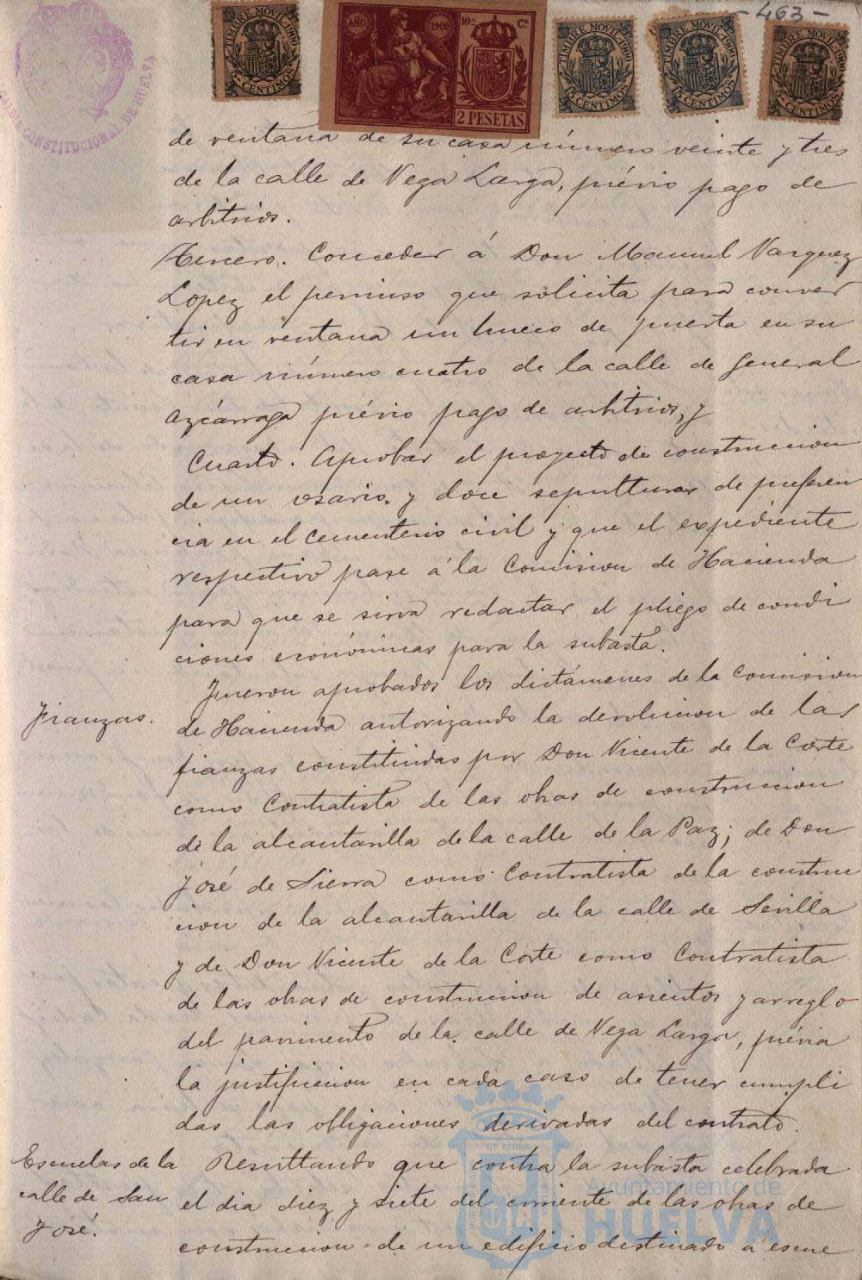 - 463 -
TIMBRE MOVIL 1900
5 CENTIMOS
AÑO 1900
10.a Cl.
2 PESETAS
TIMBRE MOVIL 1900
CENTIMOS
TIMBRE MOVIL 1900
CENTIMOS
TIMBRE MOVIL 1900
5 CENTIMOS
CONSTITUCIONAL DE HUELVA
de ventana de su casa número veinte y tres
de la calle de Vega Larga, prévio pago de
arbitrios.
Tercero. Conceder á Don Manuel Vazquez
Lopez el permiso que solicita para conver
tir en ventana un hueco de puerta en su
casa número cuatro de la calle de General
Azcárraga prévio pago de arbitrios, y
Cuarto. Aprobar el proyecto de construccion
de un osario y doce sepulturas de preferen
cia en el cementerio civil y que el expediente
respectivo pase á la Comision de Hacienda
para que se sirva redactar el pliego de condi
ciones económicas para la subasta.
Fianzas.
Fueron aprobados los dictámenes de la Comision
de Hacienda autorizando la devolucion de las
fianzas constituidas por Don Vicente de la Corte
como Contratista de las obras de construccion
de la alcantarilla de la calle de la Paz; de Don
José de Sierra como Contratista de la construc
cion de la alcantarilla de la calle de Sevilla
y de Don Vicente de la Corte como Contratista
de las obras de construccion de asientos y arreglo
del pavimento de la calle de Vega Larga, prévia
la justificacion en cada caso de tener cumpli
das las obligaciones derivadas del contrato.
Escuelas de la
calle de San
José.
Resultando que contra la subasta celebrada
el dia diez y siete del corriente de las obras de
construccion de un edificio destinado a escue
Ayuntamiento de
HUELVA